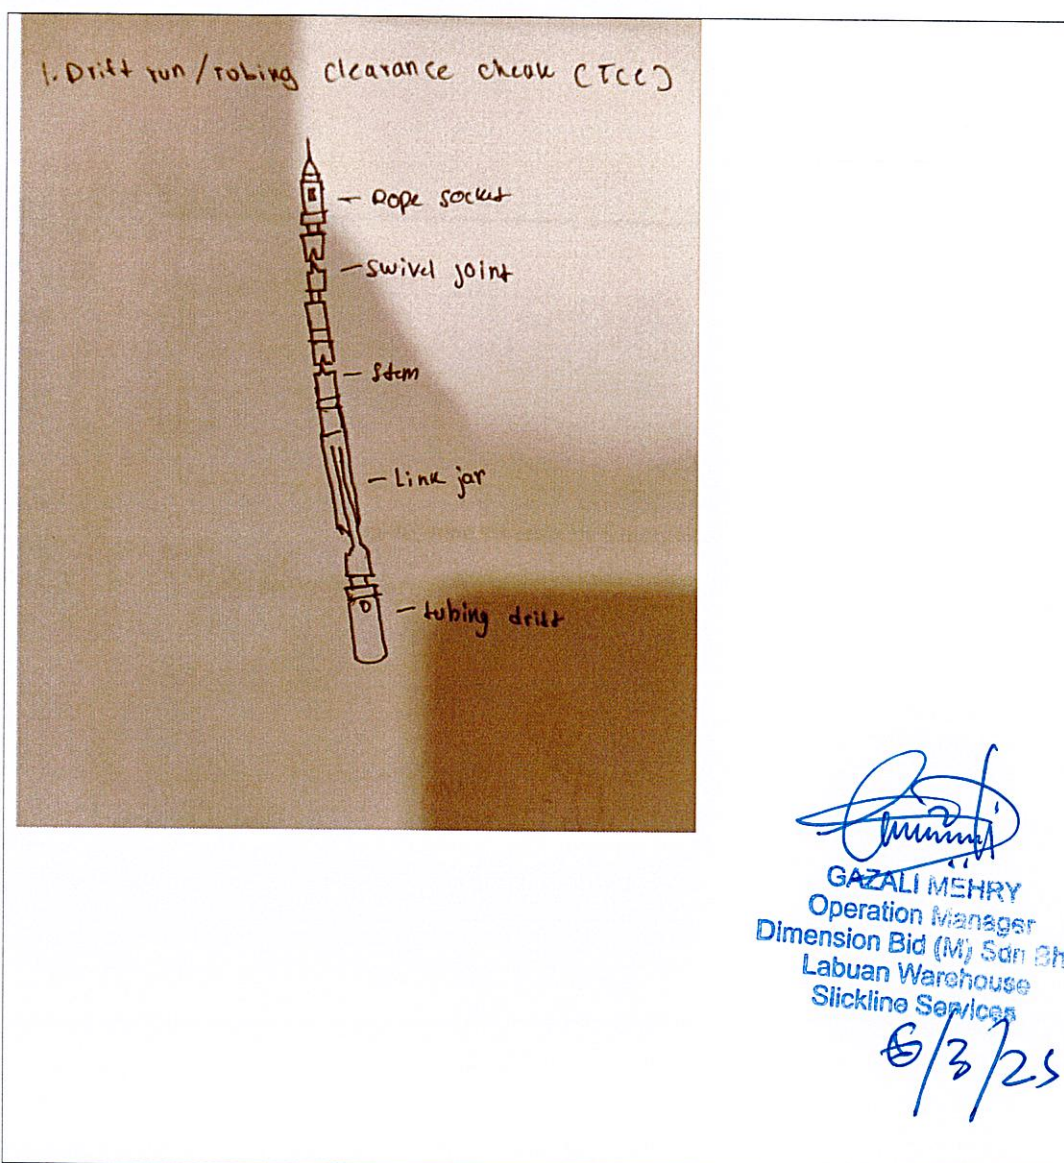 1. Drift run / tubing clearance check (TCC)
Rope socket
swivel joint
stem
Link jar
tubing drift
GAZALI MEHRY
Operation Manager
Dimension Bid (M) Sdn Bh
Labuan Warehouse
Slickline Services
6/3/25